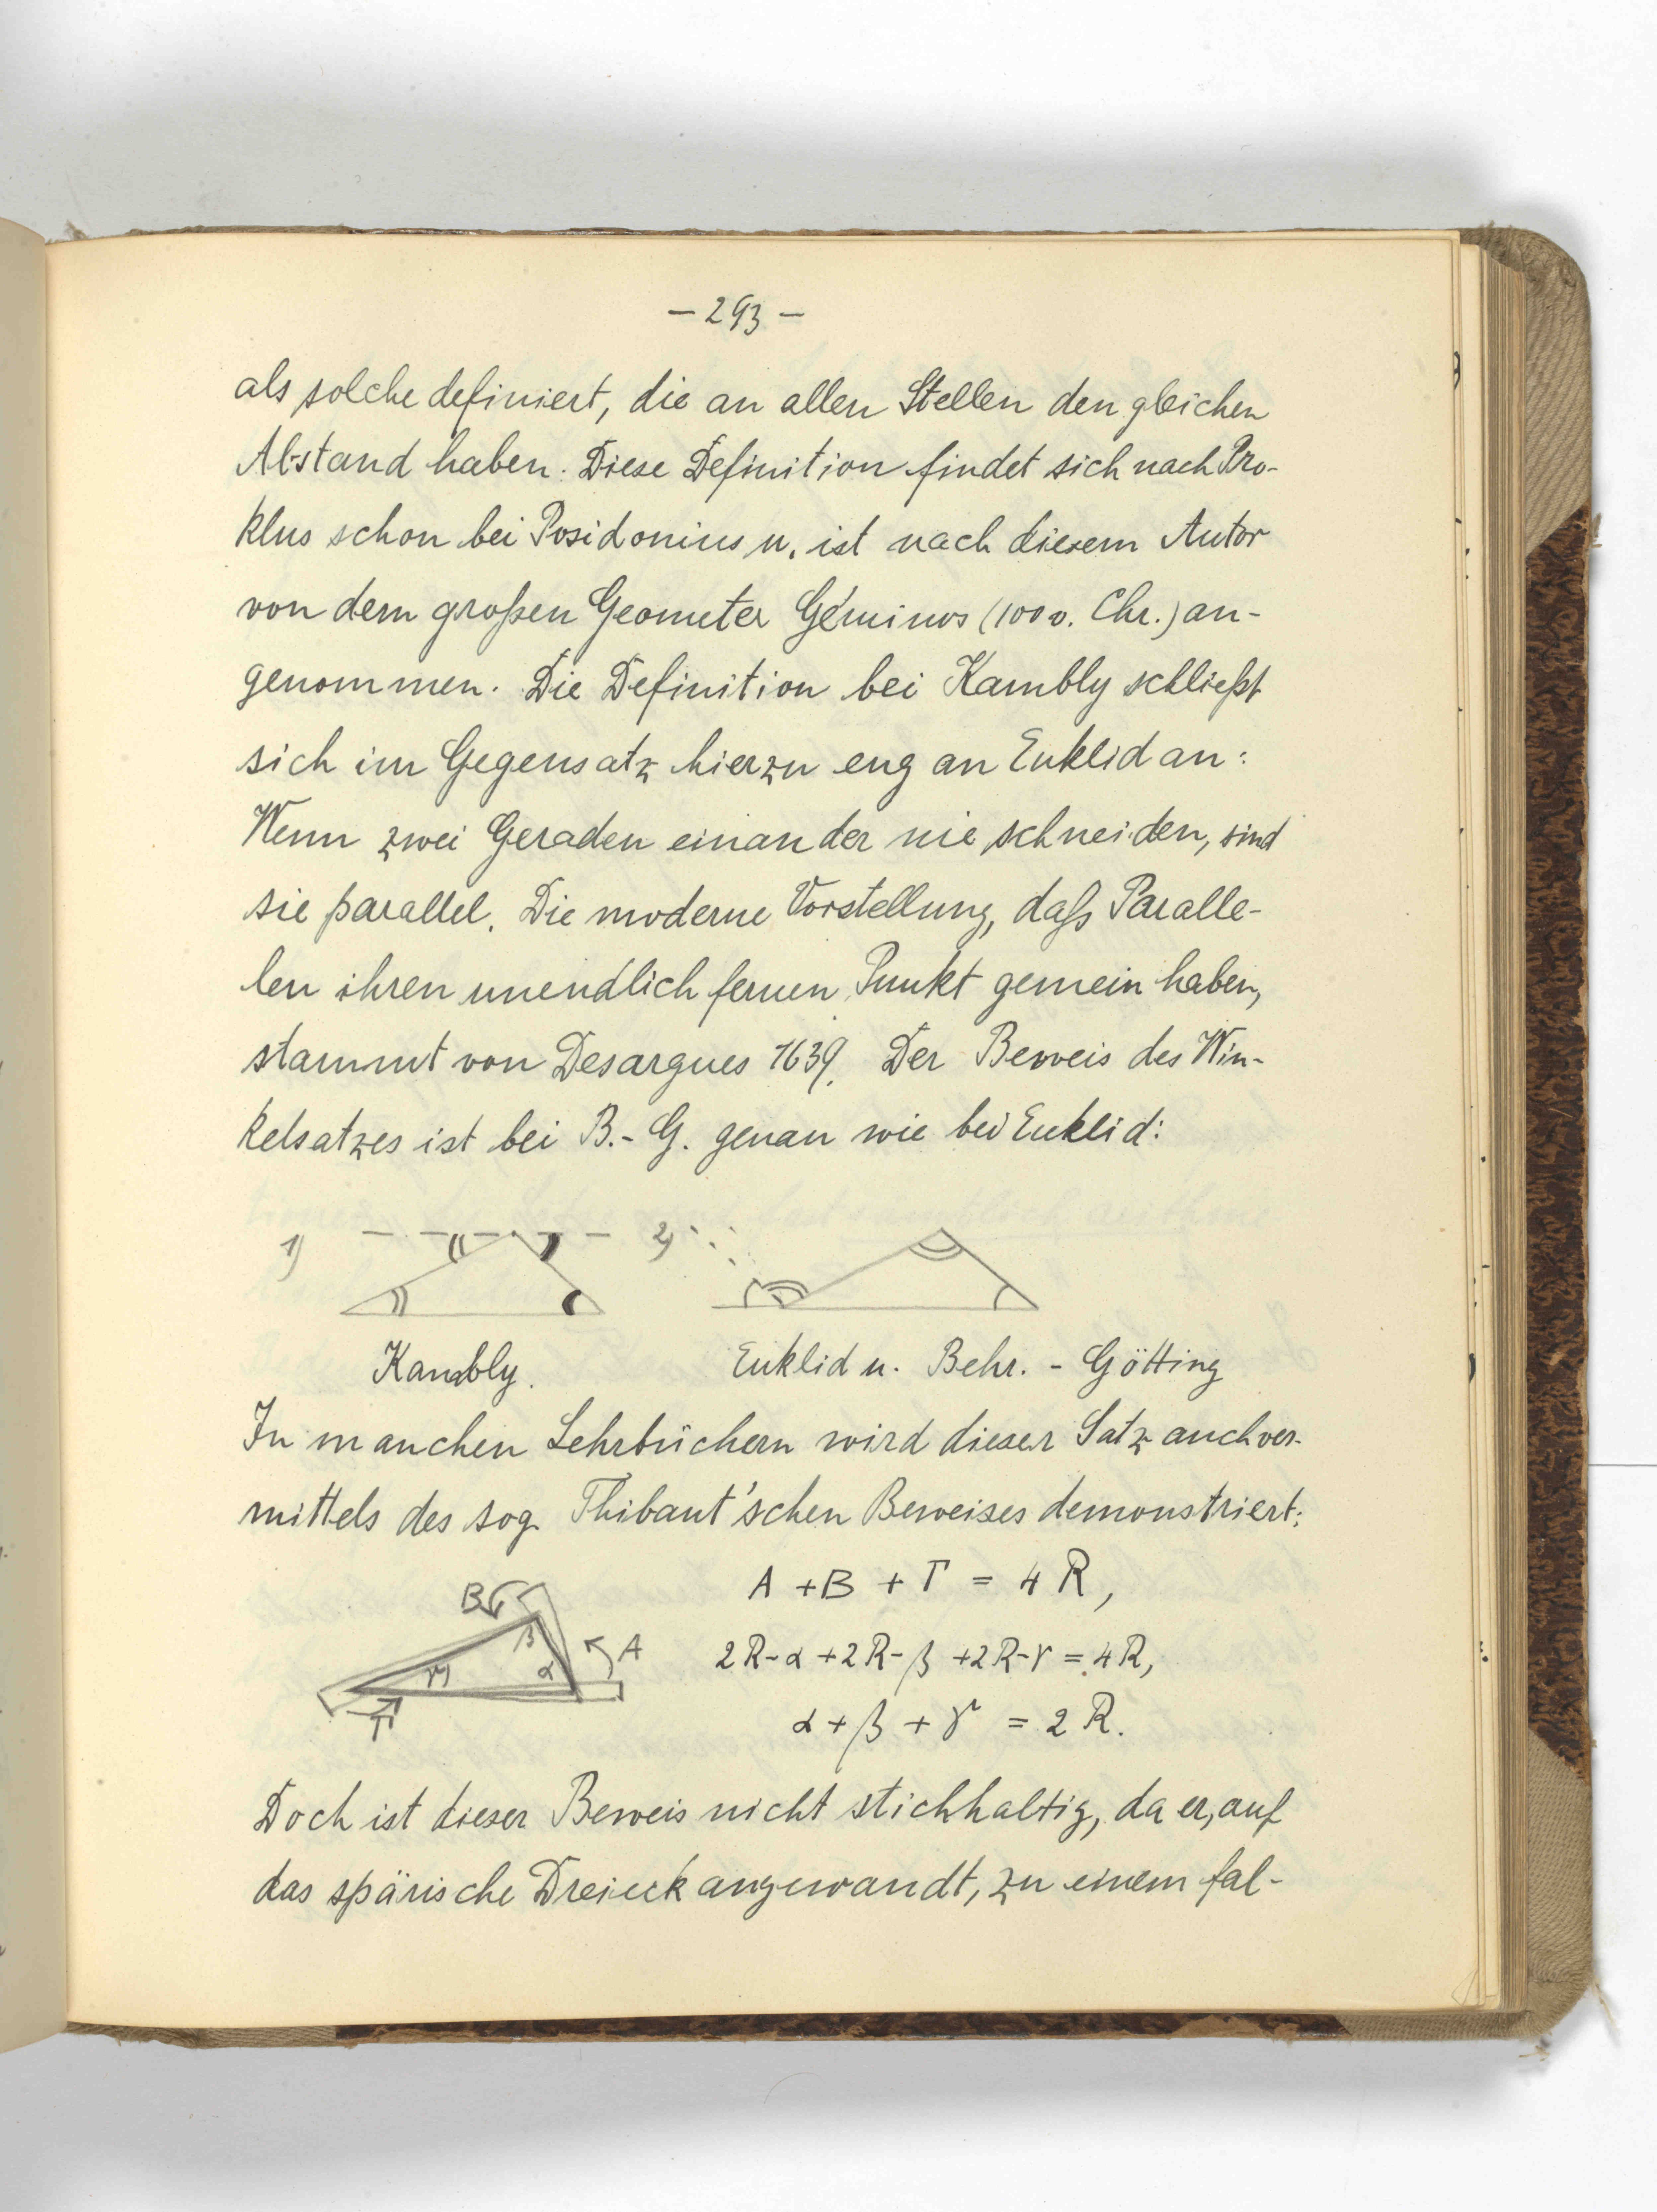 – 293 –
als solche definiert, die an allen Stellen den gleichen
Abstand haben. Diese Definition findet sich nach Pro-
klus schon bei Posidonius u. ist nach diesem Autor
von dem großen Geometer Géminos (100 v. Chr.) an-
genommen. Die Definition bei Kambly schließt
sich im Gegensatz hierzu eng an Euklid an:
Wenn zwei Geraden einander nie schneiden, sind
sie parallel. Die moderne Vorstellung, daß Paralle-
len ihren unendlich fernen Punkt gemein haben,
stammt von Desargues 1639. Der Beweis des Win-
kelsatzes ist bei B.- G. genau wie bei Euklid:
1) 2)
Kambly. Euklid u. Behr. - Götting
In manchen Lehrbüchern wird dieser Satz auch ver-
mittels des sog. Thibaut'schen Beweises demonstriert:
A + B + Γ = 4 R,
B β A γ α Γ
2R-α+2R-β+2R-γ = 4R,
α+β+γ = 2 R.
Doch ist dieser Beweis nicht stichhaltig, da er, auf
das spärische Dreieck angewandt, zu einem fal-